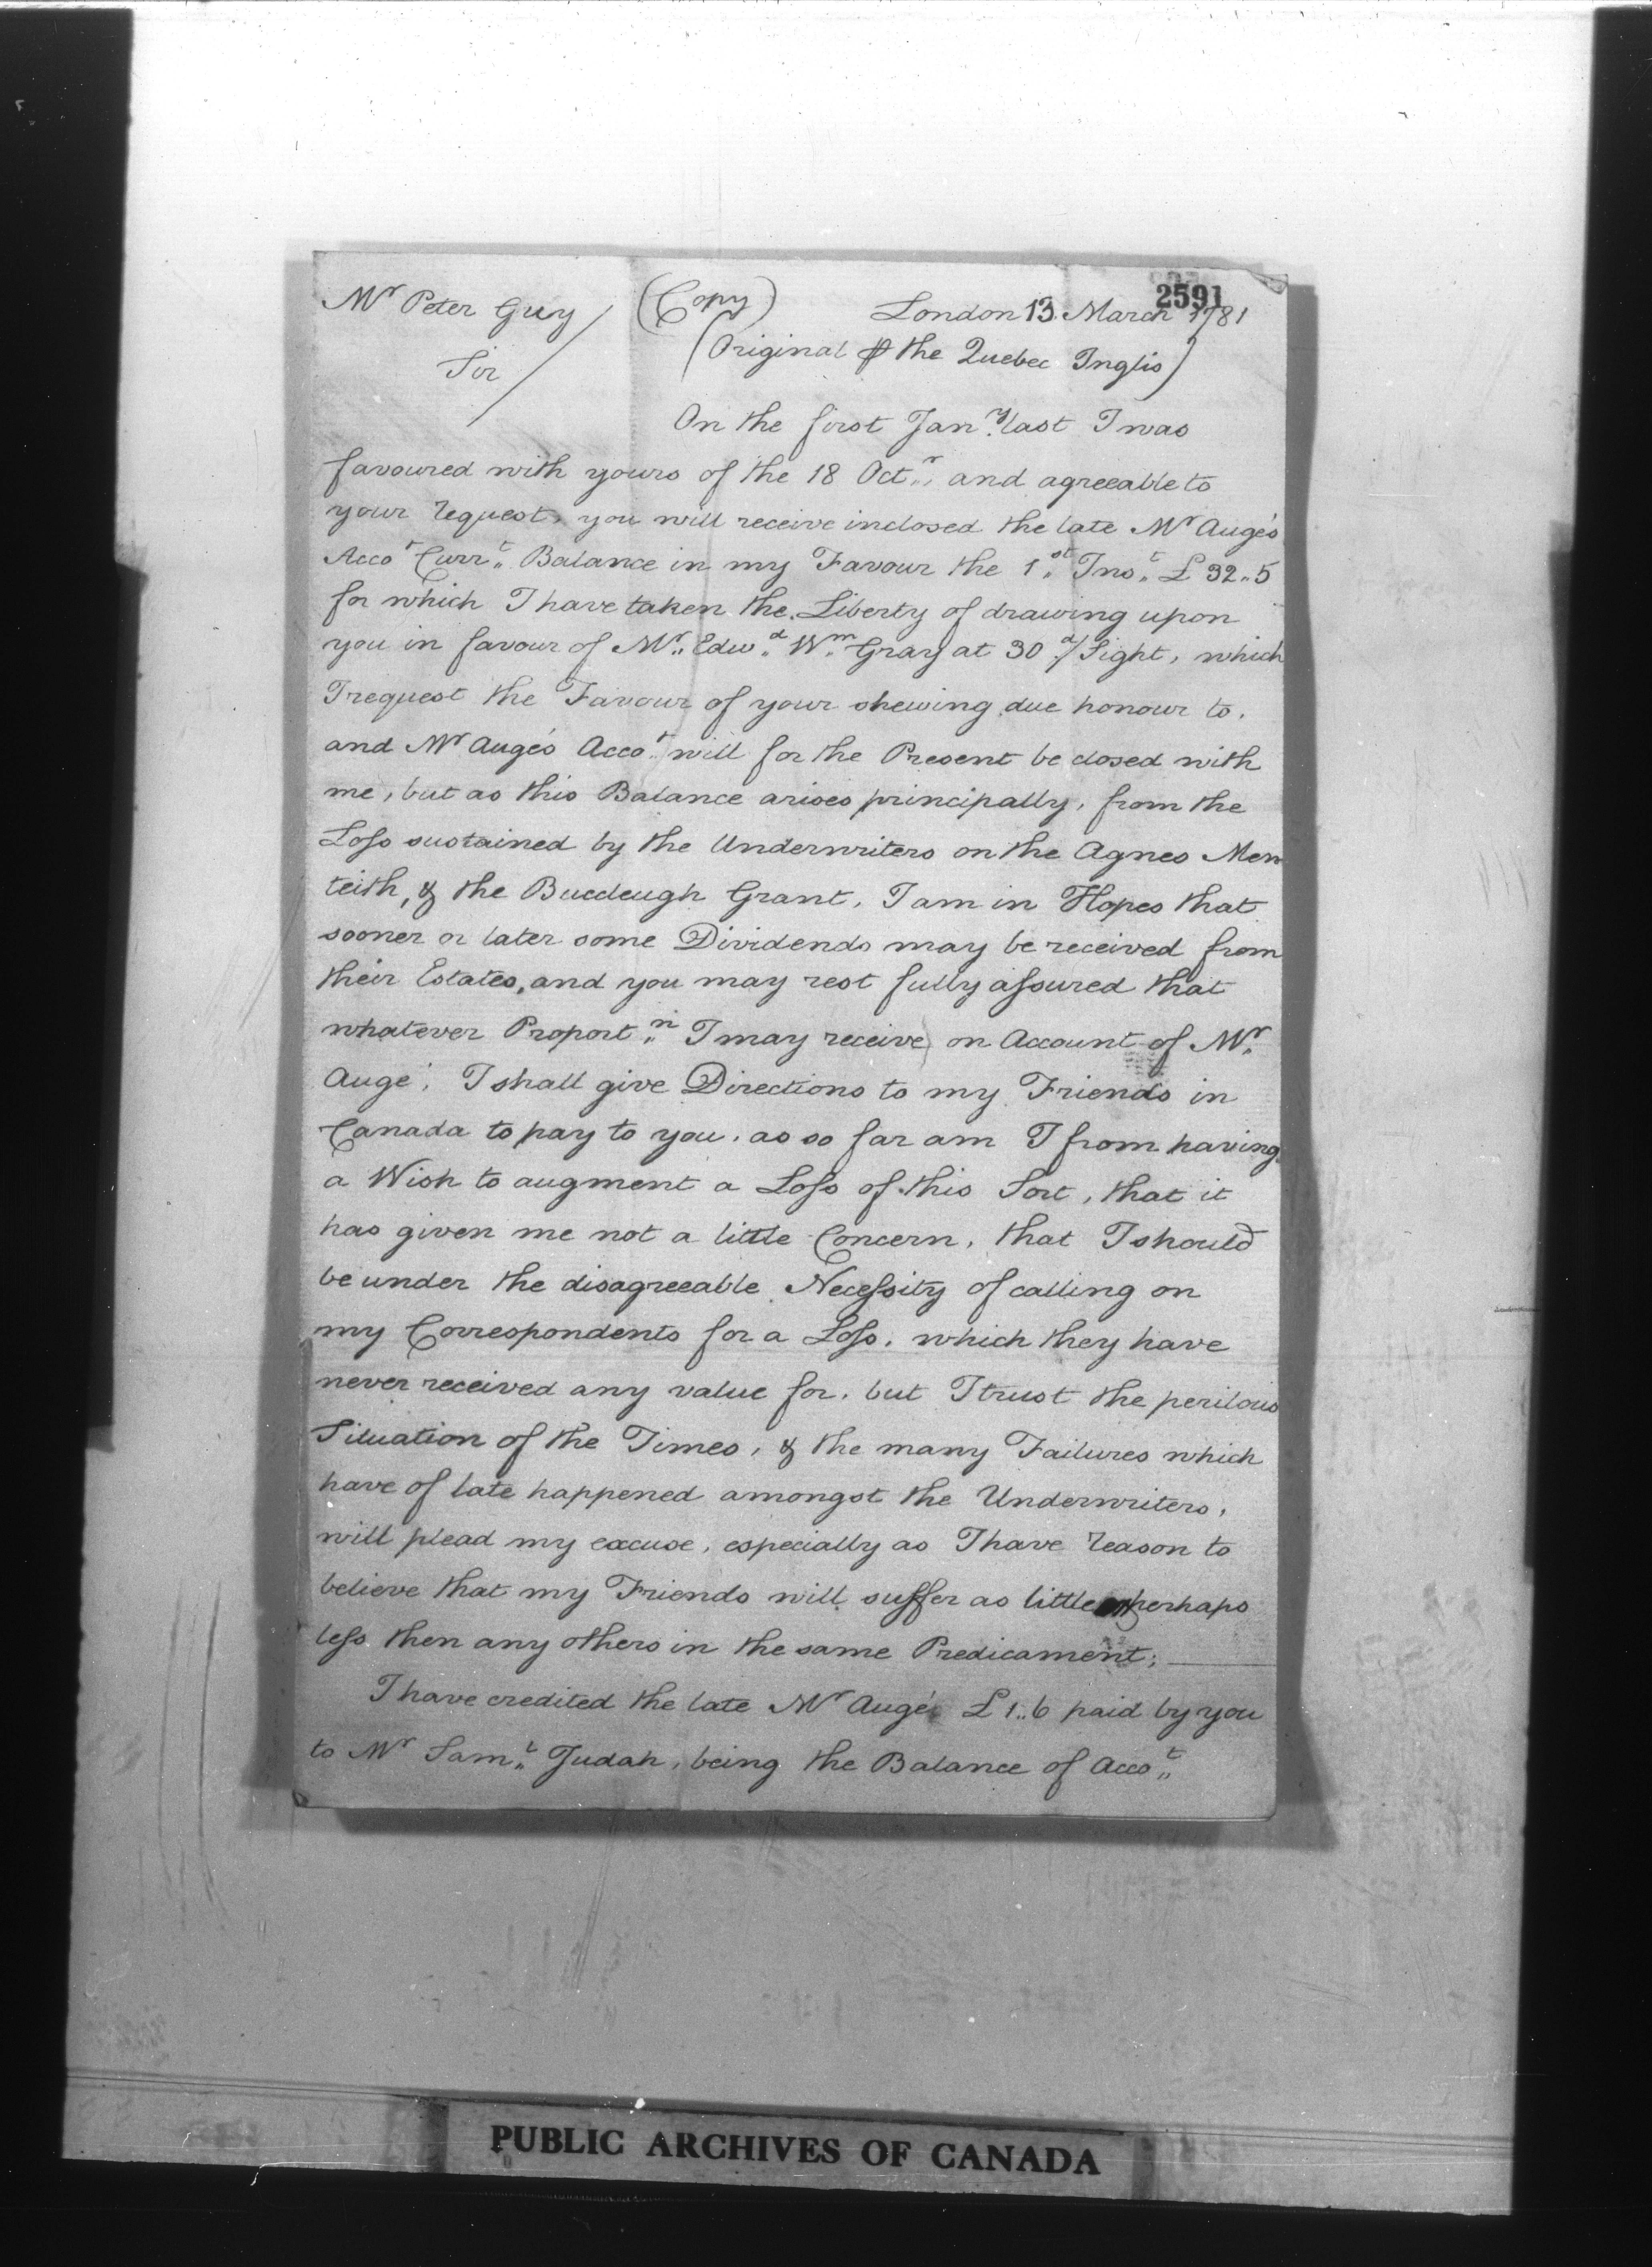 2591
Mr Peter Guy (Copy) London 13 March 1781
(Original ⅌ the Quebec Inglis)
Sir
On the first Jan.y last I was
favoured with yours of the 18 Oct.r, and agreeable to
your request, you will receive inclosed the late Mr Augé's
Acco.t Curr.t Balance in my Favour the 1.st Ins.t £ 32..5
for which I have taken the Liberty of drawing upon
you in favour of Mr. Edw.d W.m Gray at 30 d/ Sight, which
I request the Favour of your shewing due honour to,
and Mr Augé's Acco.t will for the Present be closed with
me, but as this Balance arises principally, from the
Loss sustained by the Underwriters on the Agnes Men
teith, & the Buccleugh Grant, I am in Hopes that
sooner or later some Dividends may be received from
their Estates, and you may rest fully assured that
whatever Proport.n I may receive on Account of Mr.
Augé, I shall give Directions to my Friends in
Canada to pay to you, as so far am I from having
a Wish to augment a Loss of this Sort, that it
has given me not a little Concern, that I should
be under the disagreeable Necessity of calling on
my Correspondents for a Loss, which they have
never received any value for, but I trust the perilous
Situation of the Times, & the many Failures which
have of late happened amongst the Underwriters,
will plead my excuse, especially as I have reason to
believe that my Friends will suffer as little perhaps
less then any others in the same Predicament;
I have credited the late Mr Augé £ 1..6 paid by you
to Mr Sam.l Judah, being the Balance of Acco.t
PUBLIC ARCHIVES OF CANADA